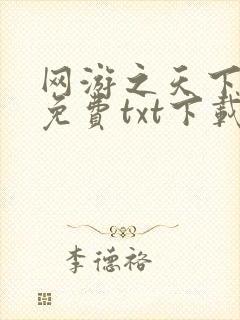 网游之天下
免費txt下載
李德裕